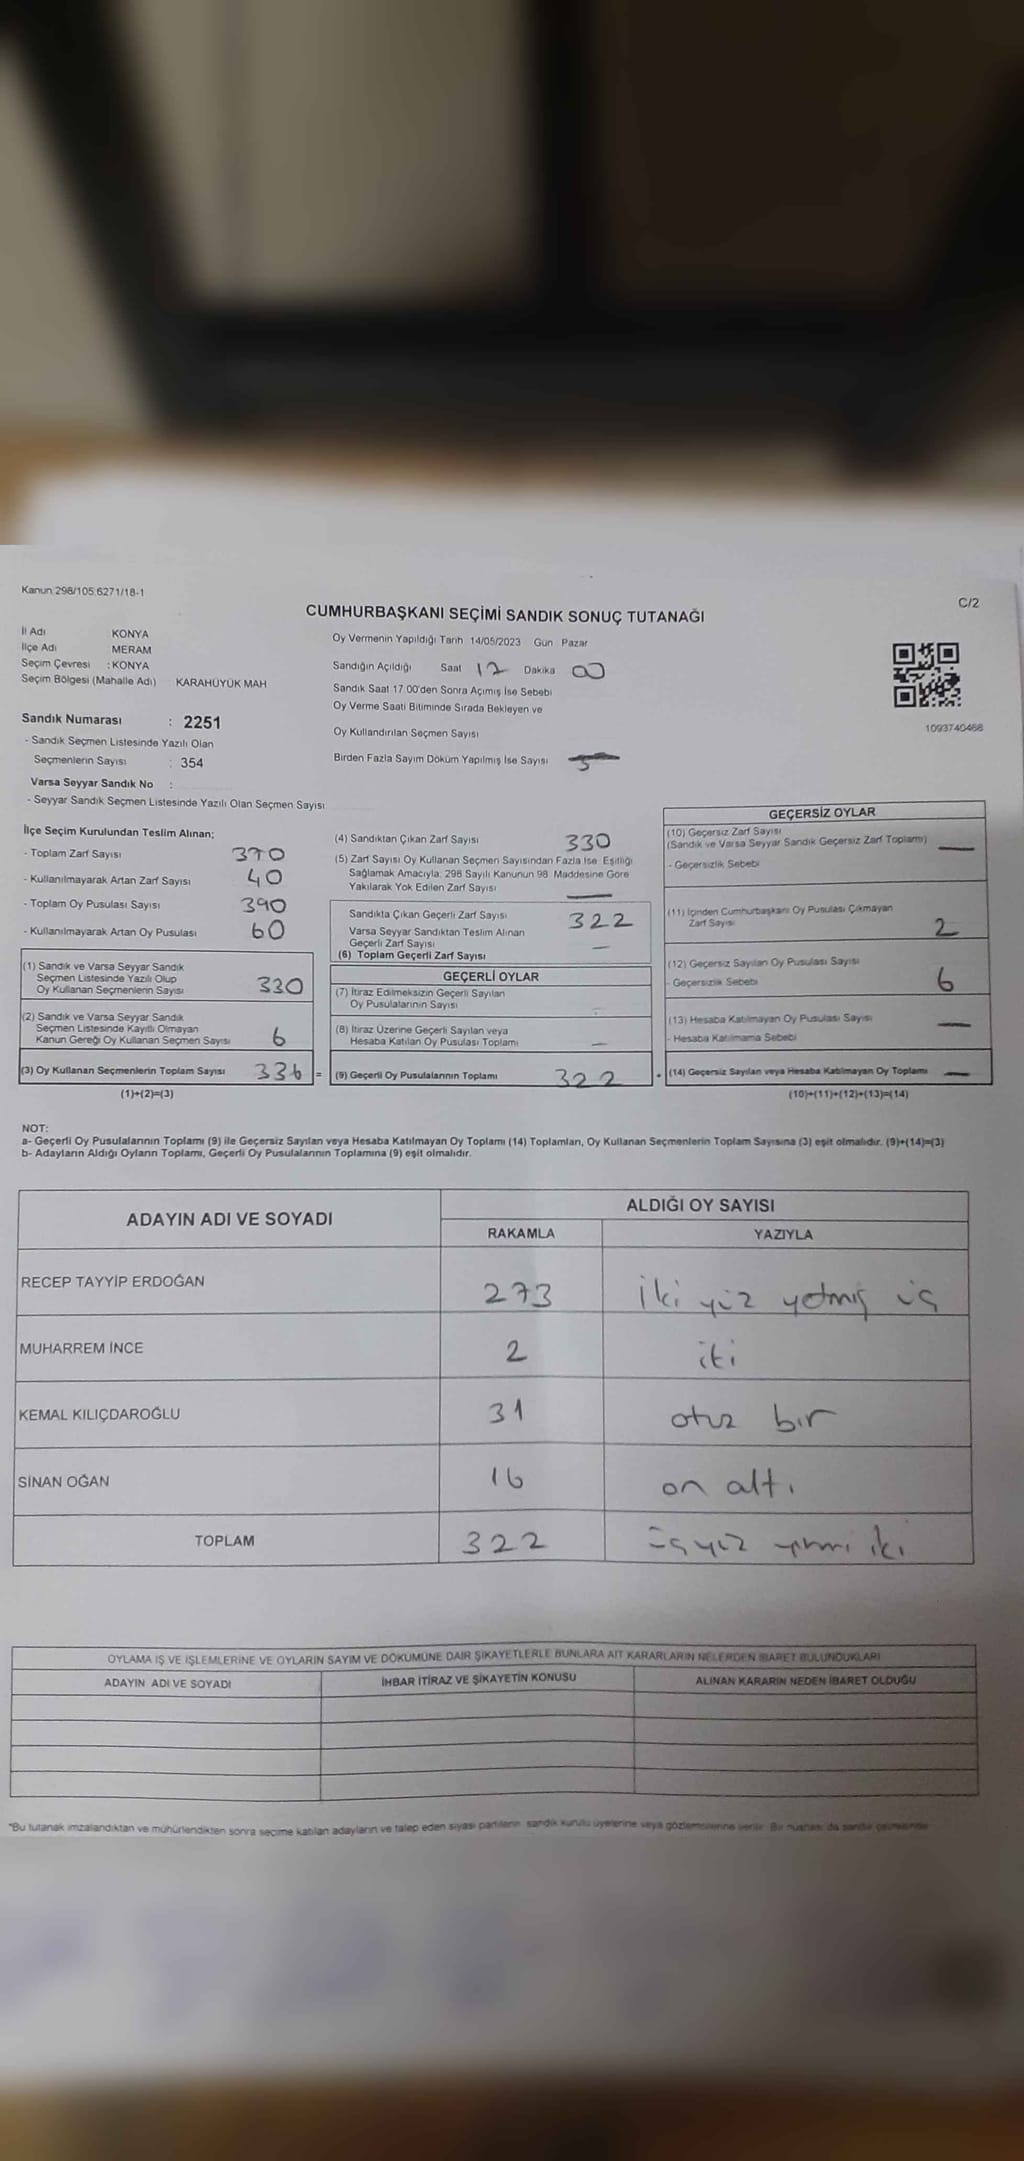 Kanun:298/105;6271/18-1
C/2
CUMHURBAŞKANI SEÇİMİ SANDIK SONUÇ TUTANAĞI
İl Adı KONYA
İlçe Adı MERAM
Seçim Çevresi : KONYA
Seçim Bölgesi (Mahalle Adı) KARAHÜYÜK MAH
Sandık Numarası : 2251
- Sandık Seçmen Listesinde Yazılı Olan
Seçmenlerin Sayısı : 354
Varsa Seyyar Sandık No :
- Seyyar Sandık Seçmen Listesinde Yazılı Olan Seçmen Sayısı
Oy Vermenin Yapıldığı Tarih 14/05/2023 Gün Pazar
Sandığın Açıldığı Saat 17 Dakika 00
Sandık Saat 17 00'den Sonra Açımış İse Sebebi
Oy Verme Saati Bitiminde Sırada Bekleyen ve
Oy Kullandırılan Seçmen Sayısı
Birden Fazla Sayım Döküm Yapılmış İse Sayısı
1093740468
İlçe Seçim Kurulundan Teslim Alınan;
- Toplam Zarf Sayısı 370
- Kullanılmayarak Artan Zarf Sayısı 40
- Toplam Oy Pusulası Sayısı 390
- Kullanılmayarak Artan Oy Pusulası 60
(1) Sandık ve Varsa Seyyar Sandık
Seçmen Listesinde Yazılı Olup
Oy Kullanan Seçmenlerin Sayısı 330
(2) Sandık ve Varsa Seyyar Sandık
Seçmen Listesinde Kayıtlı Olmayan
Kanun Gereği Oy Kullanan Seçmen Sayısı 6
(3) Oy Kullanan Seçmenlerin Toplam Sayısı 336 =
(1)+(2)=(3)
(4) Sandıktan Çıkan Zarf Sayısı 330
(5) Zarf Sayısı Oy Kullanan Seçmen Sayısından Fazla İse Eşitliği
Sağlamak Amacıyla; 298 Sayılı Kanunun 98 Maddesine Göre
Yakılarak Yok Edilen Zarf Sayısı —
Sandıkta Çıkan Geçerli Zarf Sayısı 322
Varsa Seyyar Sandıktan Teslim Alınan
Geçerli Zarf Sayısı —
(6) Toplam Geçerli Zarf Sayısı
GEÇERLİ OYLAR
(7) İtiraz Edilmeksizin Geçerli Sayılan
Oy Pusulalarının Sayısı
(8) İtiraz Üzerine Geçerli Sayılan veya
Hesaba Katılan Oy Pusulası Toplamı —
(9) Geçerli Oy Pusulalarının Toplamı 322 +
GEÇERSİZ OYLAR
(10) Geçersiz Zarf Sayısı
(Sandık ve Varsa Seyyar Sandık Geçersiz Zarf Toplamı) —
- Geçersizlik Sebebi
(11) İçinden Cumhurbaşkanı Oy Pusulası Çıkmayan
Zarf Sayısı 2
(12) Geçersiz Sayılan Oy Pusulası Sayısı
- Geçersizlik Sebebi 6
(13) Hesaba Katılmayan Oy Pusulası Sayısı —
- Hesaba Katılmama Sebebi
(14) Geçersiz Sayılan veya Hesaba Katılmayan Oy Toplamı —
(10)+(11)+(12)+(13)=(14)
NOT:
a- Geçerli Oy Pusulalarının Toplamı (9) ile Geçersiz Sayılan veya Hesaba Katılmayan Oy Toplamı (14) Toplamları, Oy Kullanan Seçmenlerin Toplam Sayısına (3) eşit olmalıdır. (9)+(14)=(3)
b- Adayların Aldığı Oyların Toplamı, Geçerli Oy Pusulalarının Toplamına (9) eşit olmalıdır.
ADAYIN ADI VE SOYADI ALDIĞI OY SAYISI
RAKAMLA YAZIYLA
RECEP TAYYİP ERDOĞAN 273 iki yüz yetmiş üç
MUHARREM İNCE 2 iki
KEMAL KILIÇDAROĞLU 31 otuz bir
SİNAN OĞAN 16 on altı
TOPLAM 322 üçyüz yirmi iki
OYLAMA İŞ VE İŞLEMLERİNE VE OYLARIN SAYIM VE DÖKÜMÜNE DAİR ŞİKAYETLERLE BUNLARA AİT KARARLARIN NELERDEN İBARET BULUNDUKLARI
ADAYIN ADI VE SOYADI İHBAR İTİRAZ VE ŞİKAYETİN KONUSU ALINAN KARARIN NEDEN İBARET OLDUĞU
*Bu tutanak imzalandıktan ve mühürlendikten sonra seçime katılan adayların ve talep eden siyasi partilerin sandık kurulu üyelerine veya gözlemcilerine verilir. Bir nüshası da sandık